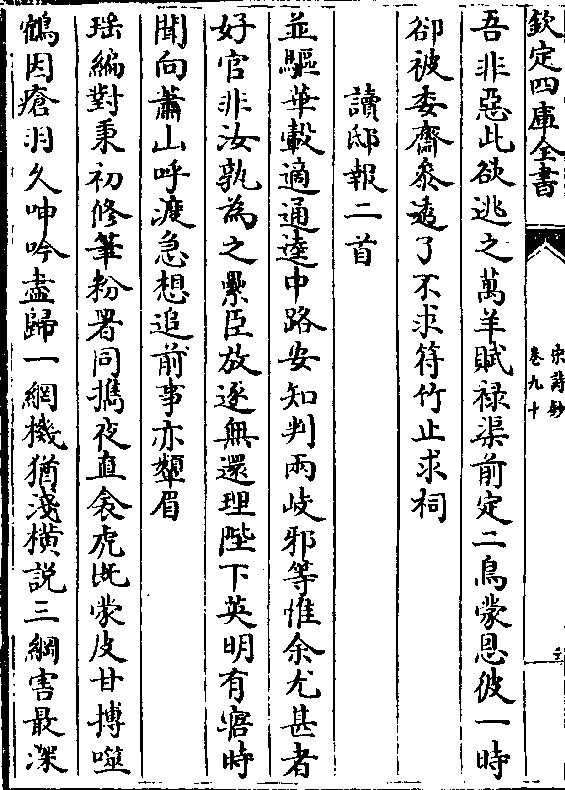 欽定四庫全書
宋詩鈔
卷九十
吾非惡此欲逃之萬羊賦祿渠前定二鳥蒙恩彼一時
卻被委齋參透了不求符竹止求祠
讀邸報二首
並驅華轂適通逵中路安知判兩岐邪等惟余尤甚者
好官非汝孰為之纍臣放逐無還理陛下英明有寤時
聞向蕭山呼渡急想追前事亦顰眉
瑶編對秉初修筆粉署同攜夜直衾虎既蒙皮甘搏噬
鶴因瘡羽久呻吟盡歸一網機猶淺橫說三綱害最深